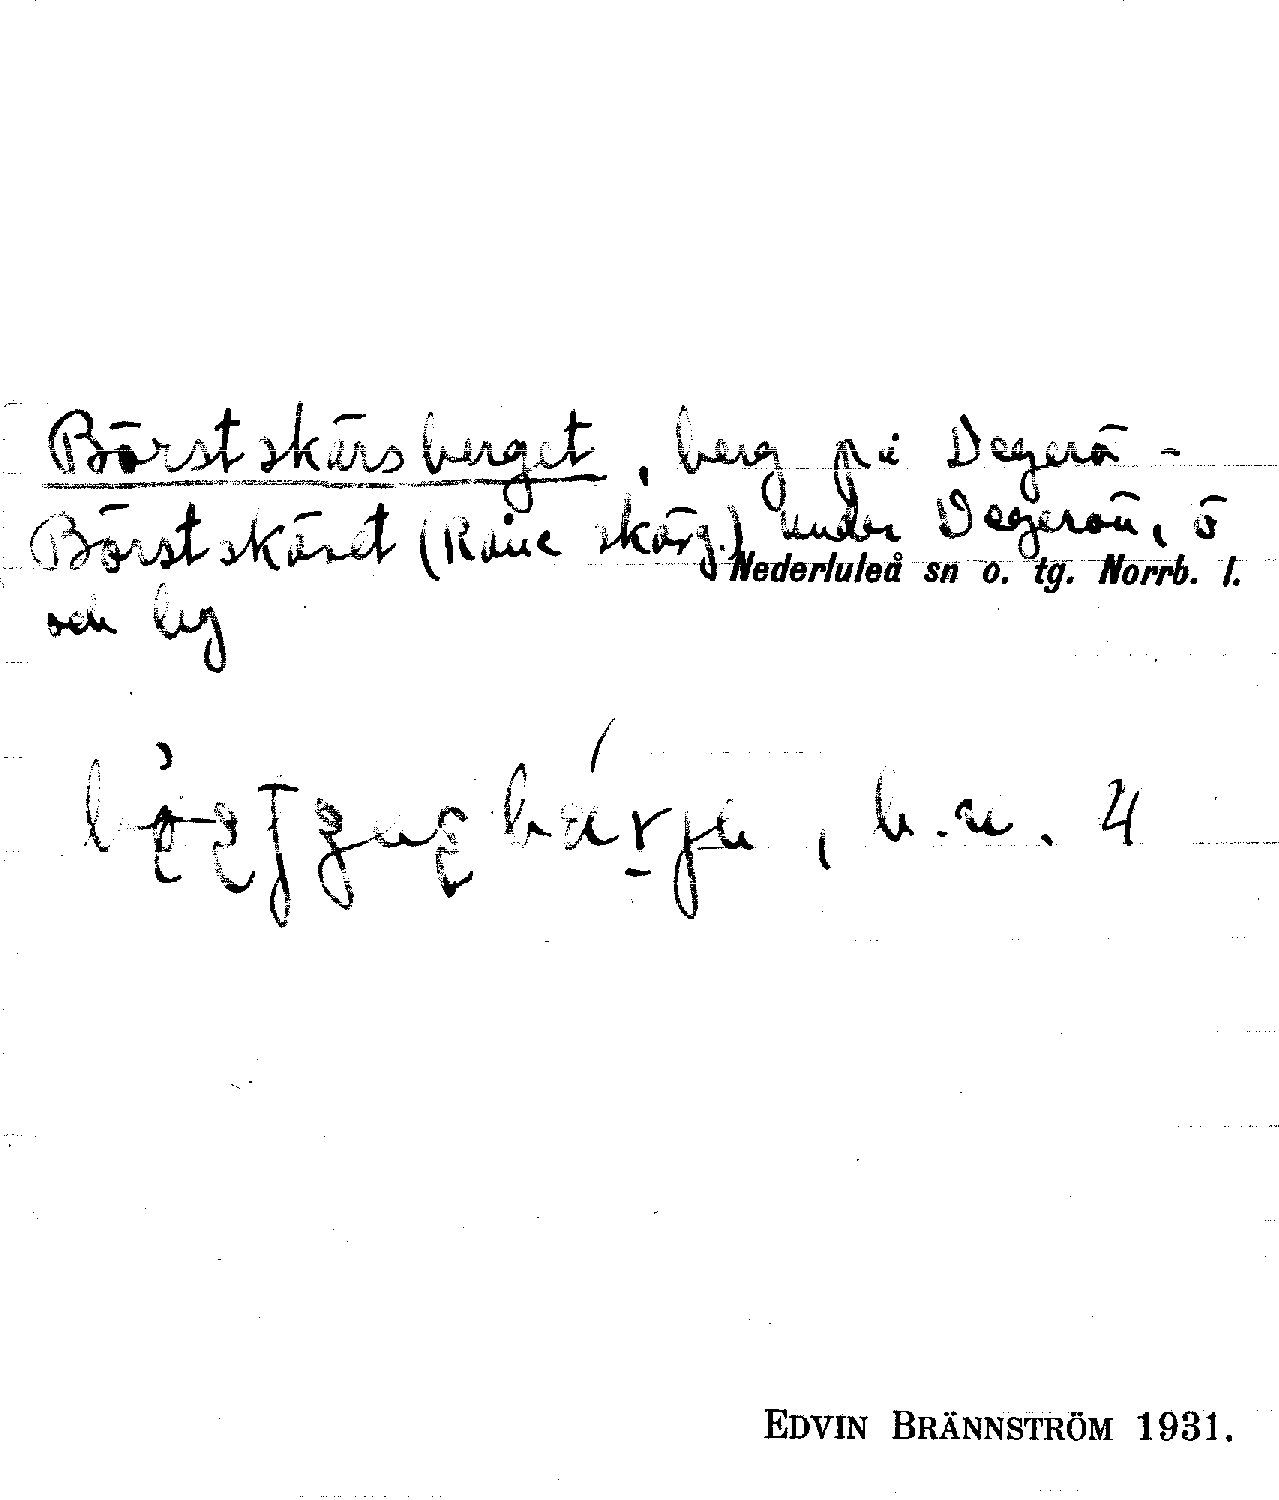 Börstskärsberget, berg på Degerö-
Börstskäret (Råne skärg.) under Degerön, ö
Nederluleå sn o. tg. Norrb. l.
och by
, b.u. 4
EDVIN BRÄNNSTRÖM 1931.